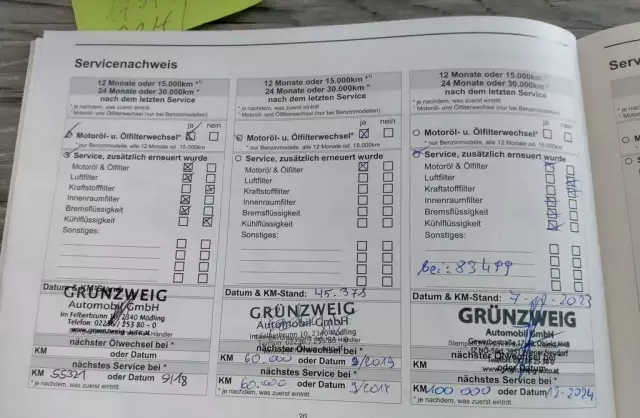 Servicenachweis
Serv
12 Monate oder 15.000km *¹⁾
24 Monate oder 30.000km *
nach dem letzten Service
* je nachdem, was zuerst eintritt
¹⁾ Motoröl- und Ölfilterwechsel (nur bei Benzinmodellen)
ja nein
Motoröl- u. Ölfilterwechsel*
* nur Benzinmodelle, alle 12 Monate od. 15.000km
Service, zusätzlich erneuert wurde
Motoröl & Ölfilter
Luftfilter
Kraftstofffilter
Innenraumfilter
Bremsflüssigkeit
Kühlflüssigkeit
Sonstiges:
Datum & KM-Stand:
GRÜNZWEIG
Automobil GmbH
Im Felberbrunn 10, 2340 Mödling
Telefon: 02236 / 253 80 - 0
www.gruenzweig-auto.at
nächster Ölwechsel bei *
KM oder Datum
nächstes Service bei *
KM 55321 oder Datum 9/18
* je nachdem, was zuerst eintritt
12 Monate oder 15.000km *¹⁾
24 Monate oder 30.000km *
nach dem letzten Service
* je nachdem, was zuerst eintritt
¹⁾ Motoröl- und Ölfilterwechsel (nur bei Benzinmodellen)
ja nein
Motoröl- u. Ölfilterwechsel*
* nur Benzinmodelle, alle 12 Monate od. 15.000km
Service, zusätzlich erneuert wurde
Motoröl & Ölfilter
Luftfilter
Kraftstofffilter
Innenraumfilter
Bremsflüssigkeit
Kühlflüssigkeit
Sonstiges:
Datum & KM-Stand: 45.378
GRÜNZWEIG
Automobil GmbH
nächster Ölwechsel bei *
KM 60.000 oder Datum 9/2019
nächstes Service bei *
KM 60.000 oder Datum 9/2019
* je nachdem, was zuerst eintritt
12 Monate oder 15.000km *¹⁾
24 Monate oder 30.000km *
nach dem letzten Service
* je nachdem, was zuerst eintritt
¹⁾ Motoröl- und Ölfilterwechsel (nur bei Benzinmodellen)
ja nein
Motoröl- u. Ölfilterwechsel*
* nur Benzinmodelle, alle 12 Monate od. 15.000km
Service, zusätzlich erneuert wurde
Motoröl & Ölfilter
Luftfilter
Kraftstofffilter
Innenraumfilter
Bremsflüssigkeit
Kühlflüssigkeit
Sonstiges:
bei: 83499
Datum & KM-Stand:
GRÜNZWEIG
Automobil GmbH
nächster Ölwechsel bei *
KM oder Datum
nächstes Service bei *
KM 100 000 oder Datum
* je nachdem, was zuerst eintritt
20